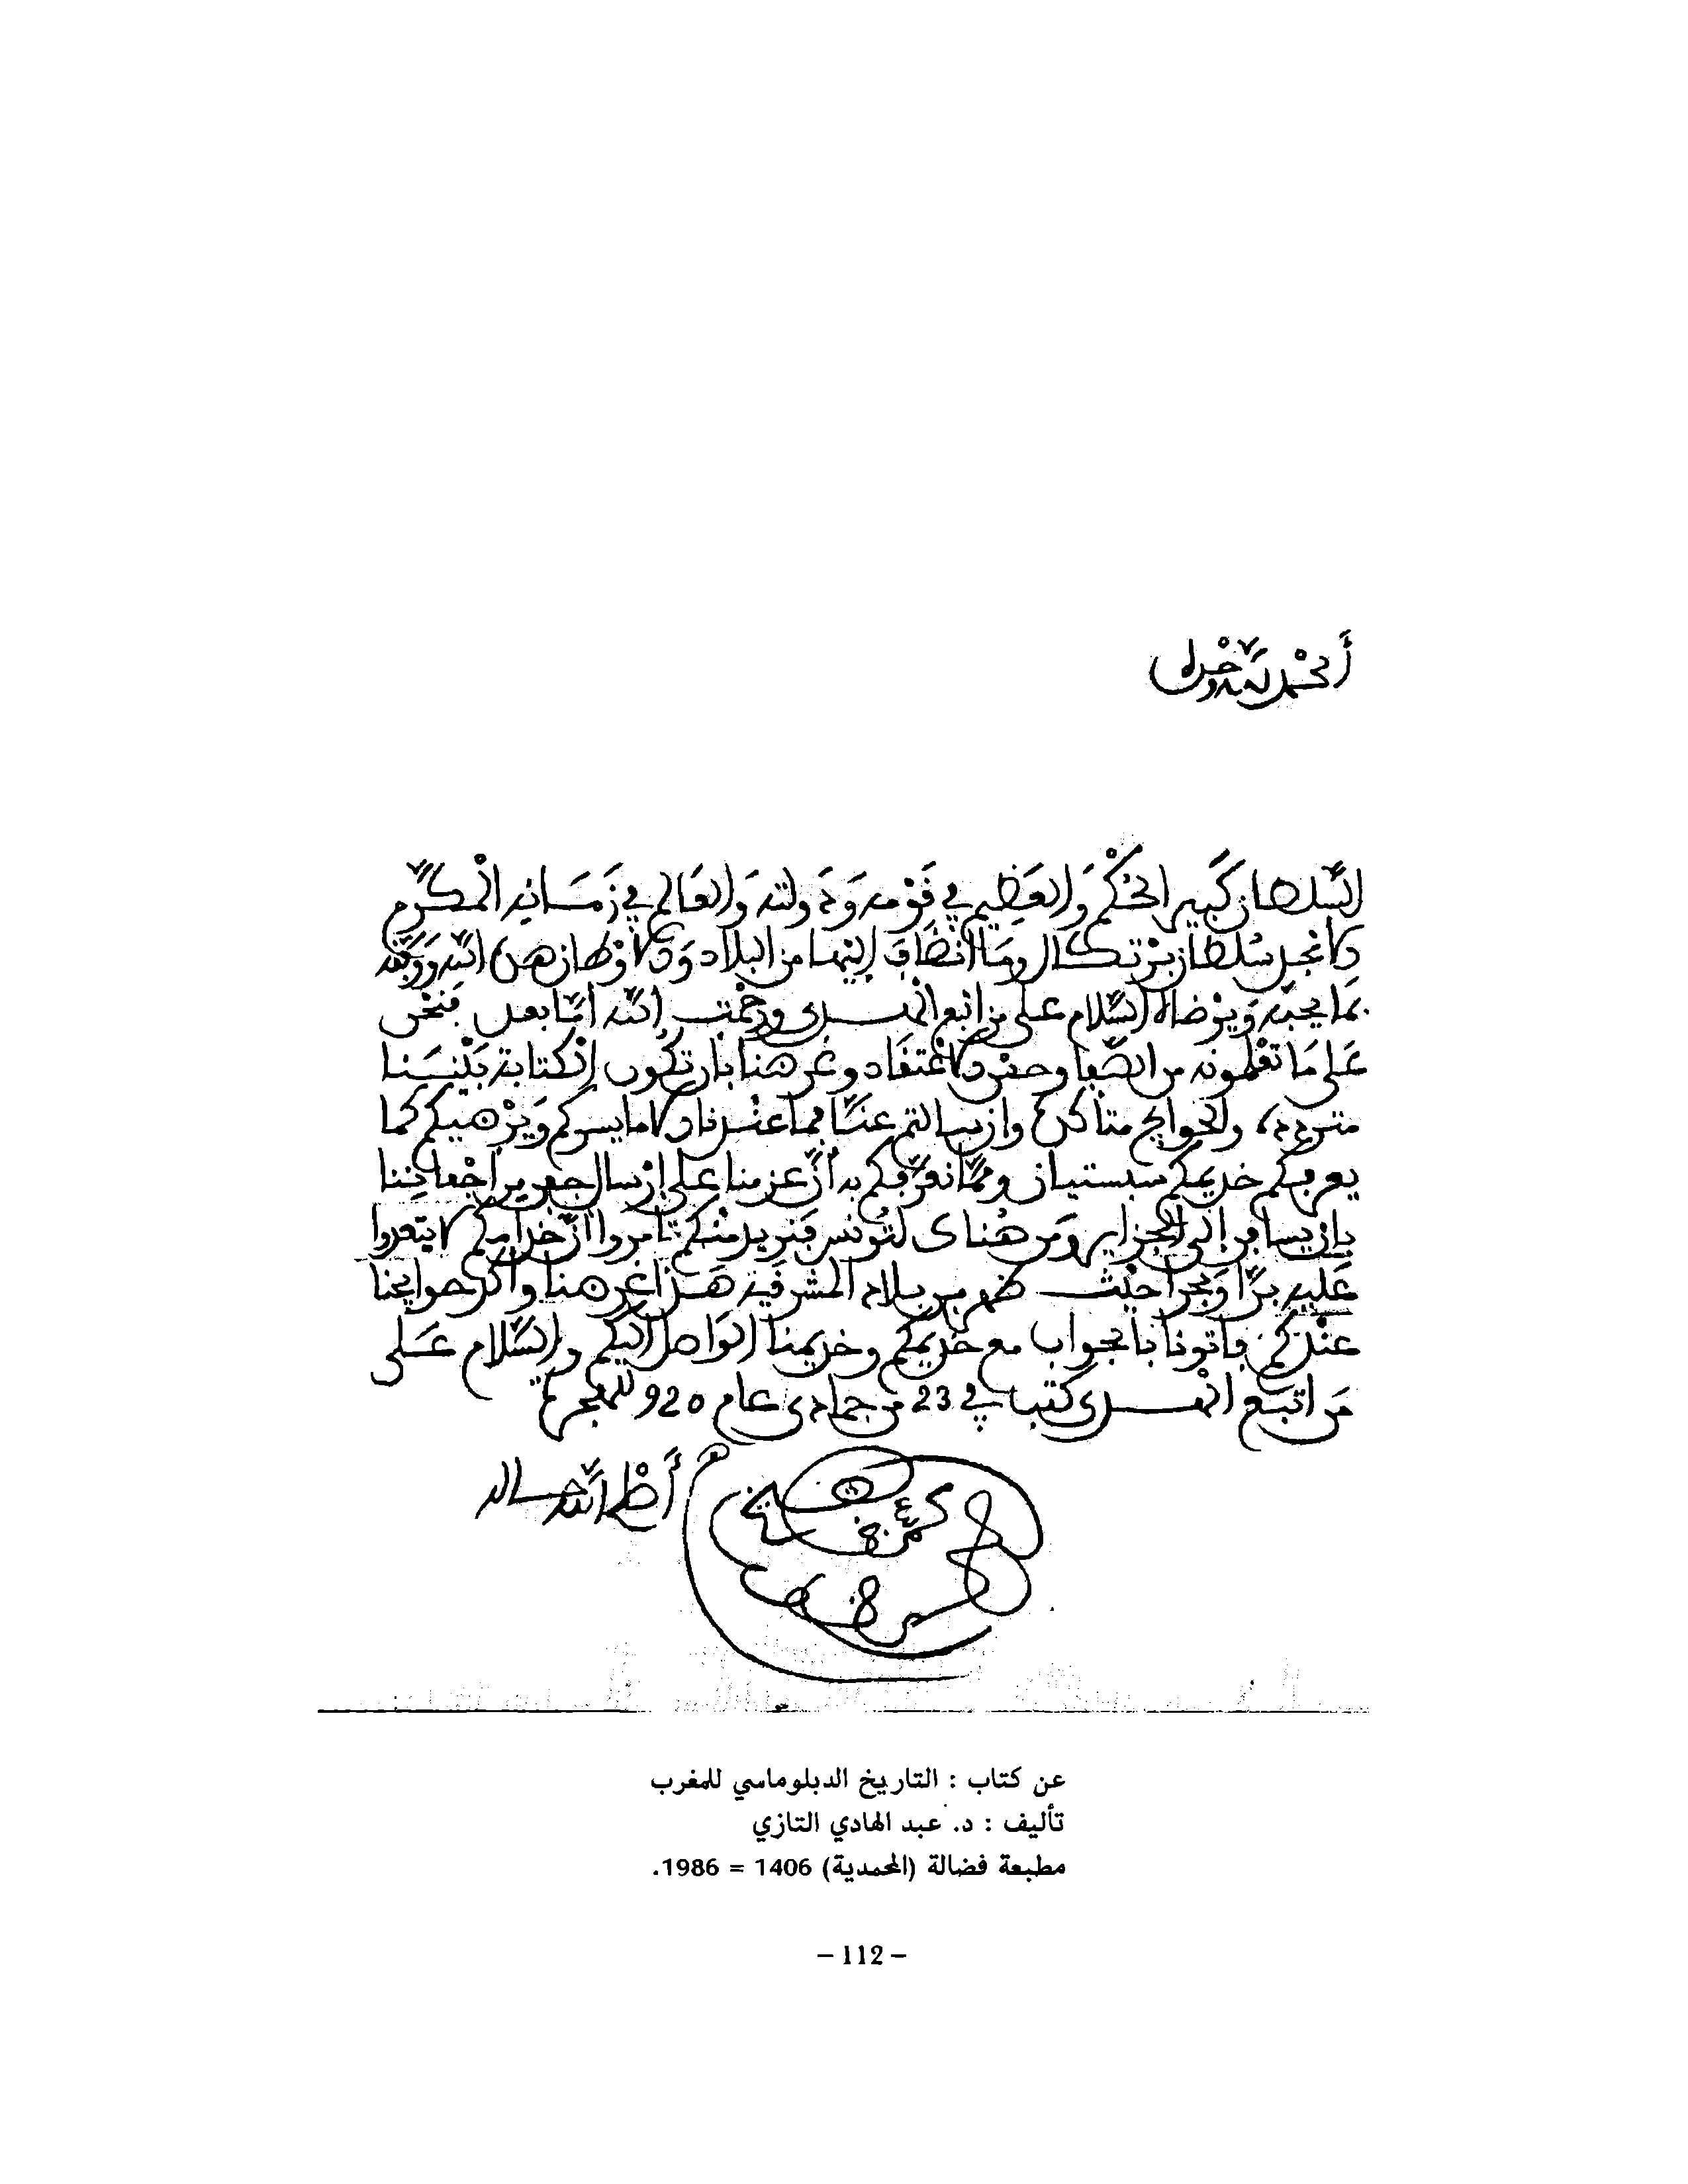 الحمد لله وحده
السلطان كبير الحكم والعظيم في قومه ودولته والعالم في زمانه المكرم
الانجل سلطان برتكال وما انضاف إليها من البلاد والاوطان هدى الله ووفقه
بما يحبه ويرضاه السلام على من اتبع الهدى ورحمت الله أما بعد فنحن
على ما تعلمونه من الصفا وحسن الاعتقاد وغرضنا بان تكون الكتابة بيننا
مترددة والحوايج متأكدة وان سالتم عنا فما عندنا الا ما يسركم ويرضيكم كما
يعرفكم خديمكم سبستيان ومما نعرفكم به أن عزمنا على إرسال
بان يسافر إلى الجزاير ومن هناك لتونس فنريد منكم تامروا أن خدامكم لا يتعدوا
عليه برا وبحرا حيث بلاد المشرقية هذا غرضنا وآكد حوايجنا
عندكم فاتونا بالجواب مع خديمكم وخديمنا الواصل اليكم والسلام على
من اتبع الهدى كتب في 23 من جمادى عام 920 للهجرة
أصلح الله حاله
عن كتاب : التاريخ الدبلوماسي للمغرب
تأليف : د. عبد الهادي التازي
مطبعة فضالة (المحمدية) 1406 = 1986.
– 112 –